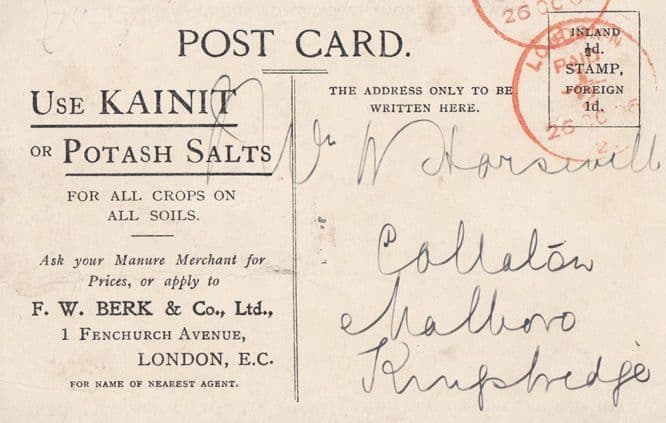 POST CARD.
USE KAINIT
OR POTASH SALTS
FOR ALL CROPS ON
ALL SOILS.
Ask your Manure Merchant for
Prices, or apply to
F. W. BERK & Co., Ltd.,
1 FENCHURCH AVENUE,
LONDON, E.C.
FOR NAME OF NEAREST AGENT.
THE ADDRESS ONLY TO BE
WRITTEN HERE.
INLAND
½d.
STAMP,
FOREIGN
1d.
26 OC
LONDON
PAID
26 OC 06
Mr W Horswill
Collaton
Malboro
Kingsbridge